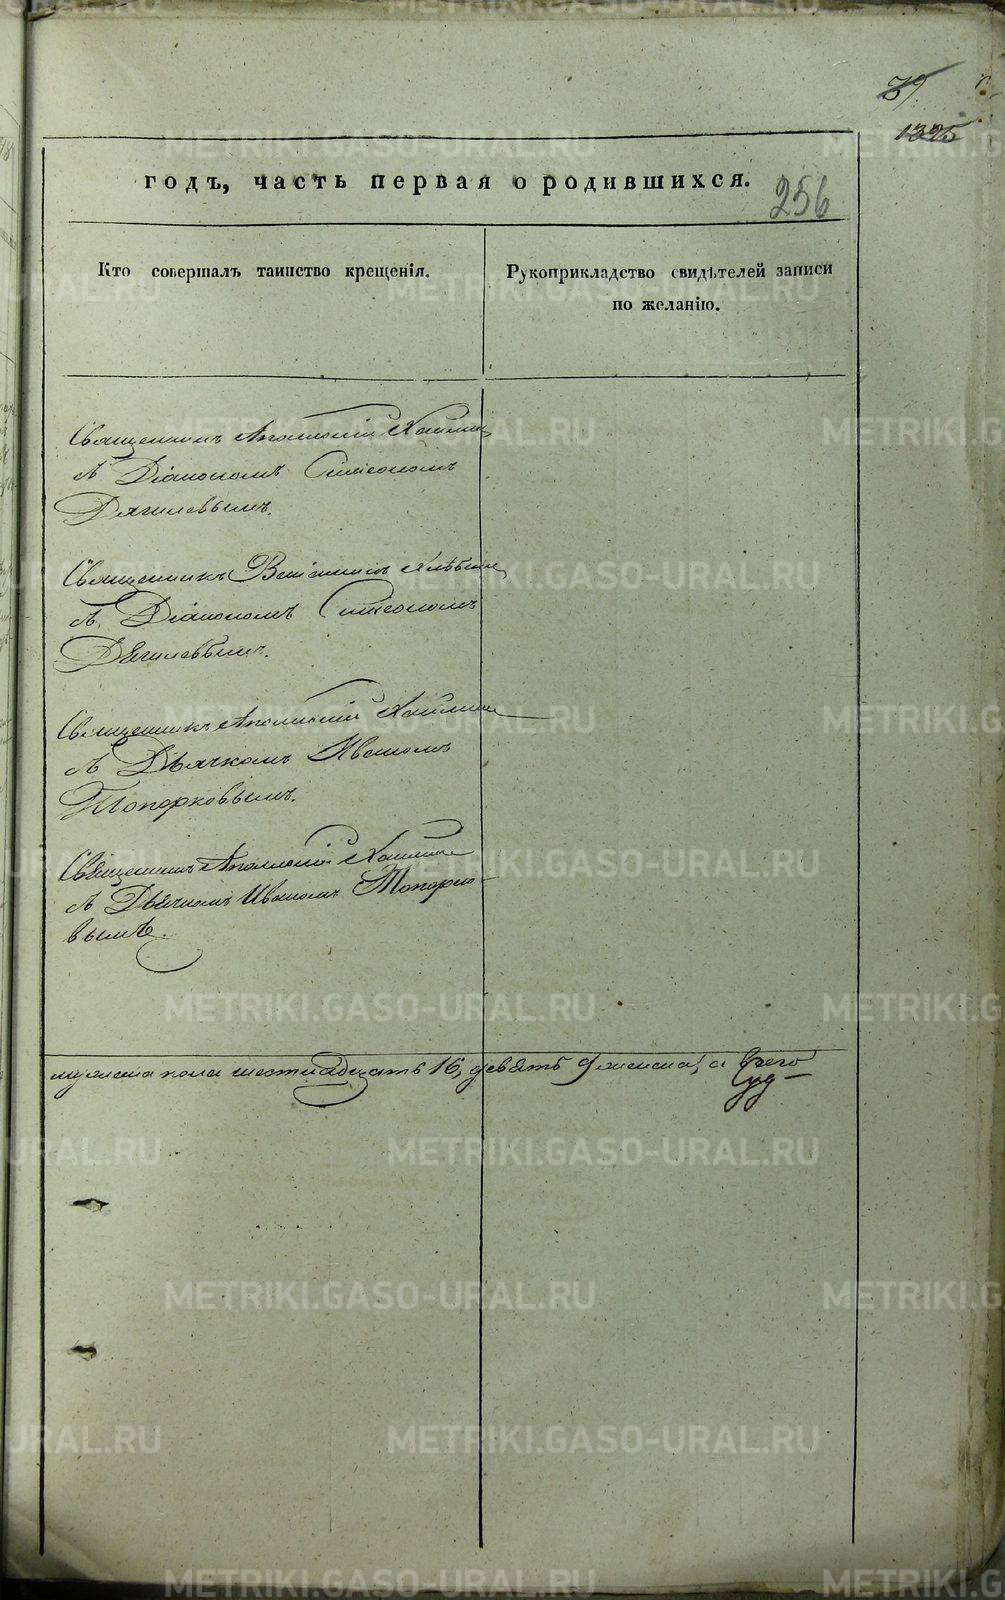 39.
1325
годъ, часть первая о родившихся.
256
Кто совершалъ таинство крещенія.
Рукоприкладство свидѣтелей записи
по желанію.
Священникъ Аполлоній
съ Діакономъ Симеономъ
Дягилевымъ.
Священникъ Веніаминъ Хлѣбинъ
съ Діакономъ Симеономъ
Дягилевымъ.
Священникъ Аполлоній
съ Дьячкомъ Иваномъ
Топорковымъ.
Священникъ Аполлоній
съ Дьячкомъ Иваномъ Топорко-
вымъ.
мужеска пола шестнадцать 16, девять 9 женска, а всего
METRIKI.GASO-URAL.RU